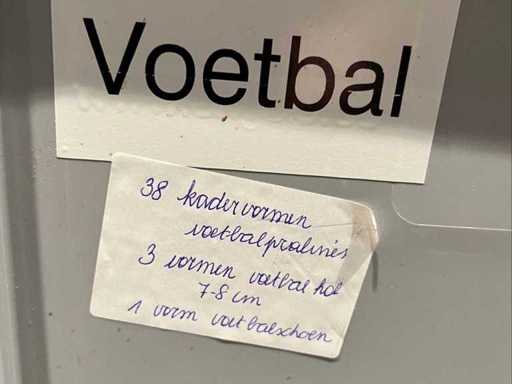 Voetbal
38 kadervormen
voetbalpralinés
3 vormen voetbal hol
7-8 cm
1 vorm voetbalschoen